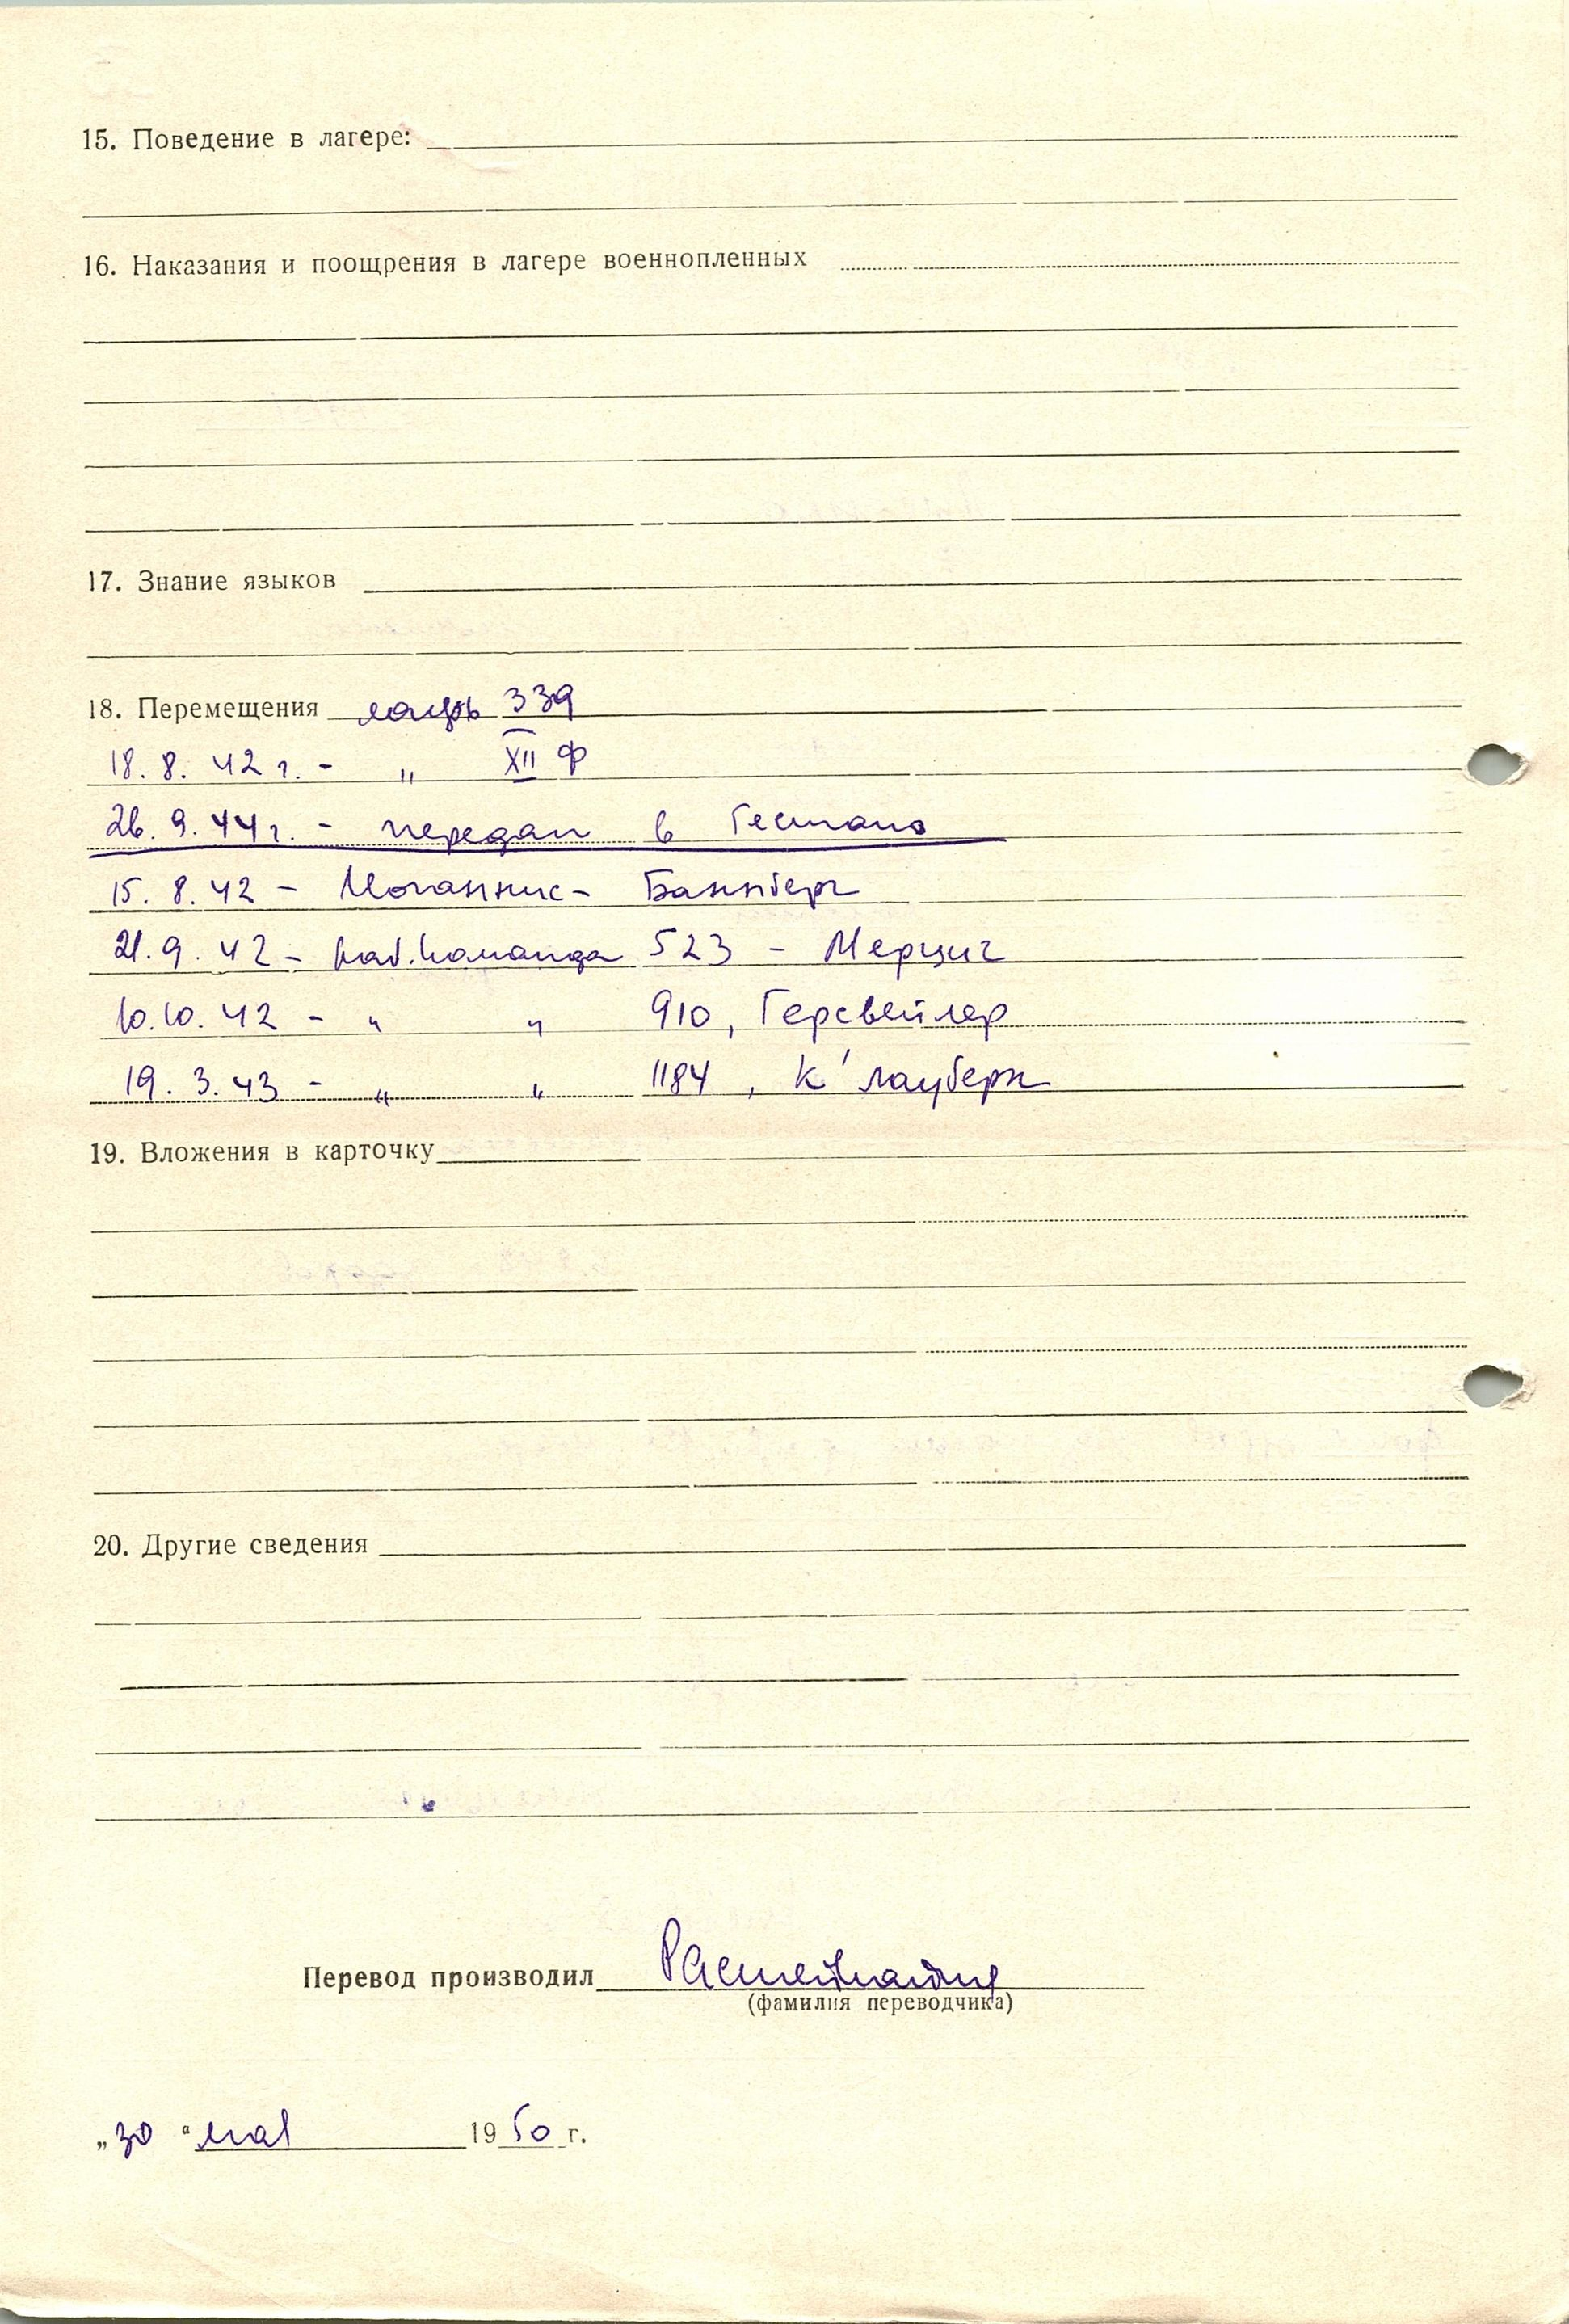 15. Поведение в лагере:
16. Наказания и поощрения в лагере военнопленных
17. Знание языков
18. Перемещения лагерь 339
18. 8. 42 г. - " XII Ф
26. 9. 44 г. - передан в Гестапо
15. 8. 42 - Иоганнис- Баннберг
21. 9. 42 - раб.команда 523 - Мерциг
10.10. 42 - " " 910, Герсвейлер
19. 3. 43 - " " 1184, К'лауберн
19. Вложения в карточку
20. Другие сведения
Перевод производил
(фамилия переводчика)
„30 “ мая 1950 г.